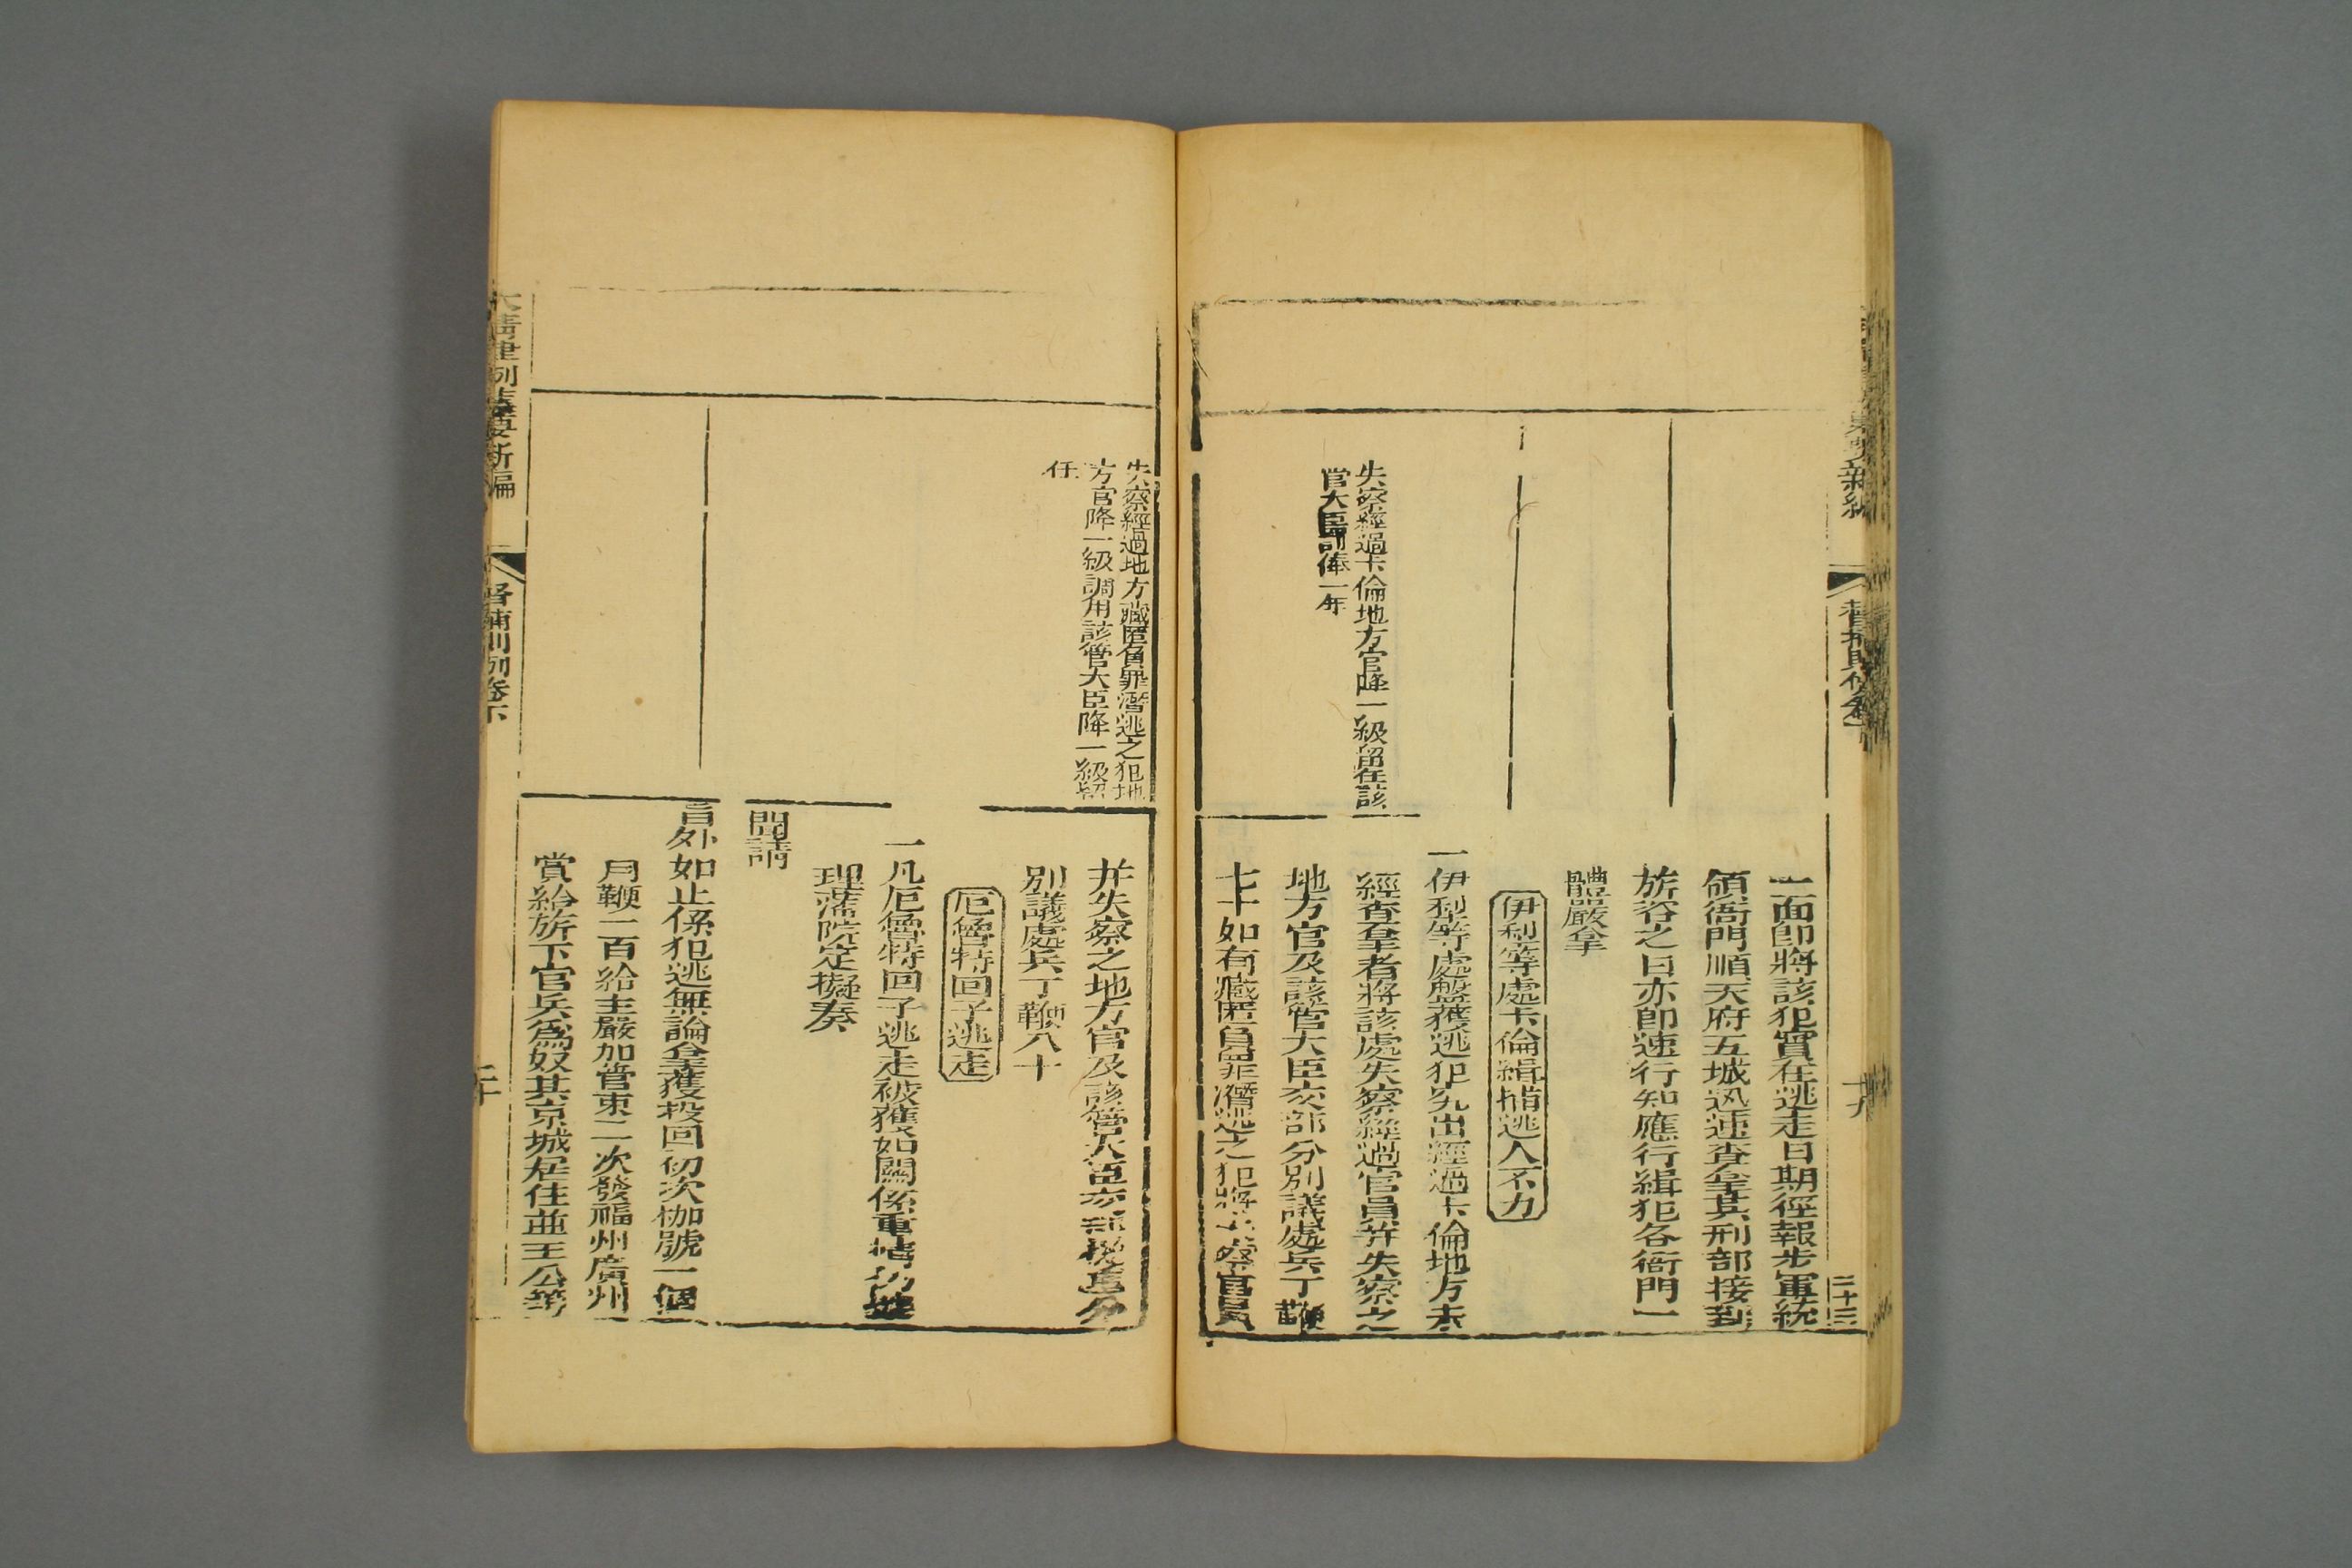 一面卽將該犯實在逃走日期徑報步軍統
領衙門順天府五城迅速查拿其刑部接到
旂咨之日亦卽速行知應行緝犯各衙門一
體嚴拿
伊犁等處卡倫緝捕逃人不力
失察經過卡倫地方官降一級留任該
管大臣罰俸一年
一伊犁等處盤獲逃犯究出經過卡倫地方未
經查拿者將該處失察經過官員并失察之
地方官及該管大臣交部分別議處兵丁鞭
七十如有藏匿負罪潛逃之犯將失察官員
十九
二十三
失察經過地方藏匿負罪潛逃之犯地
方官降一級調用該管大臣降一級留
任
并失察之地方官及該管大臣交部從重分
別議處兵丁鞭八十
厄魯特回子逃走
一凡厄魯特回子逃走被獲如關係重情仍
理藩院定擬奏
聞請
旨外如止係犯逃無論拿獲投回初次枷號一個
月鞭一百給主嚴加管束二次發福州廣州
賞給旂下官兵爲奴其京城居住並王公等
大清律例薈要新編
督捕則例卷下
二十